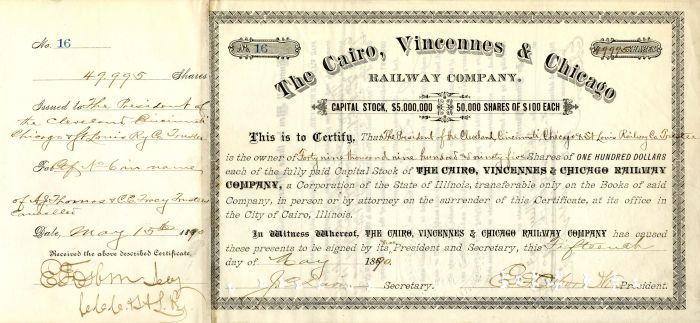 No. 16
49995 Shares
Issued to The President of
the Cleveland Cincinnati
Chicago & St Louis Ry Co Trustee
For Ctf No 6 in name
of A.J. Thomas & C.E. Tracy Trustees
Cancelled
Date, May 15th 1890
Received the above described Certificate,
C.C.C. & St L Ry
No. 16
49995 SHARES
The Cairo, Vincennes & Chicago
RAILWAY COMPANY.
CAPITAL STOCK, $5,000,000 50,000 SHARES OF $100 EACH
This is to Certify, That The President of the Cleveland Cincinnati Chicago & St Louis Railway Co Trustee
is the owner of Forty nine thousand nine hundred & ninety five Shares of ONE HUNDRED DOLLARS
each of the fully paid Capital Stock of THE CAIRO, VINCENNES & CHICAGO RAILWAY
COMPANY, a Corporation of the State of Illinois, transferable only on the Books of said
Company, in person or by attorney on the surrender of this Certificate, at its office
in the City of Cairo, Illinois.
In Witness Whereof, THE CAIRO, VINCENNES & CHICAGO RAILWAY COMPANY has caused
these presents to be signed by its Vice President and Secretary, this Fifteenth
day of May 1890.
Secretary. President.